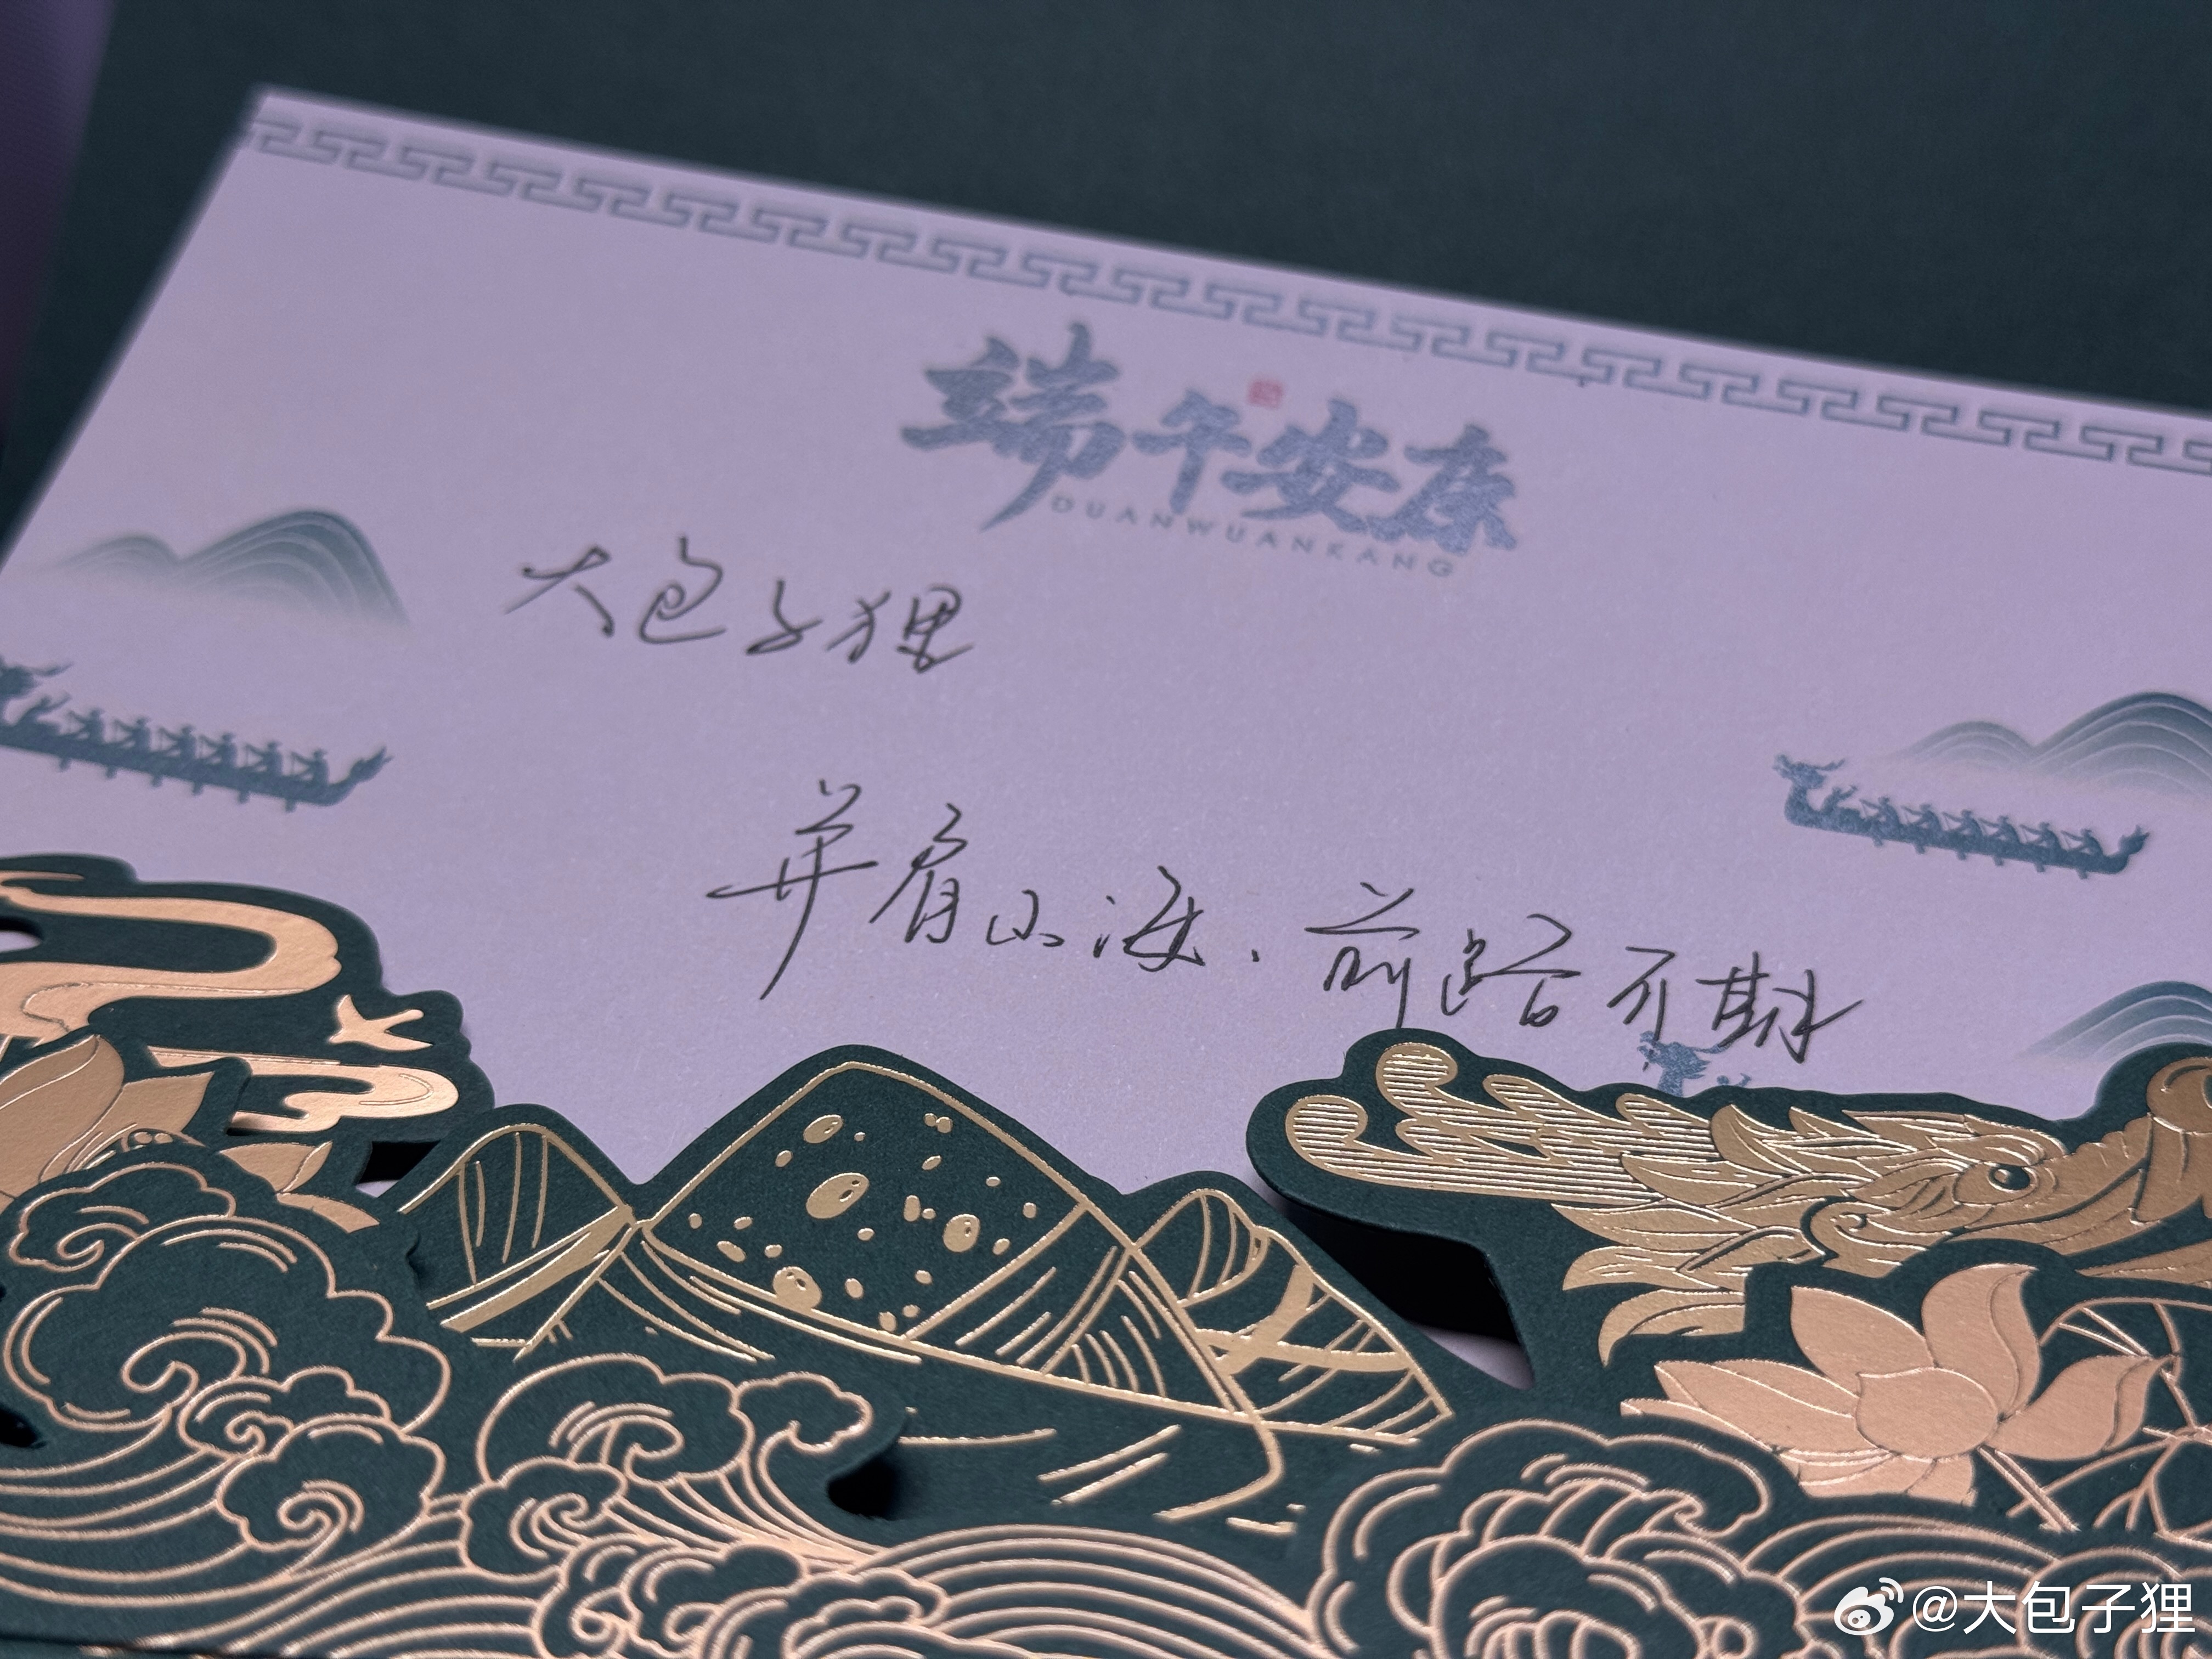 端午安康
DUANWUANKANG
大包子狸
并肩山海、前路可期
@大包子狸